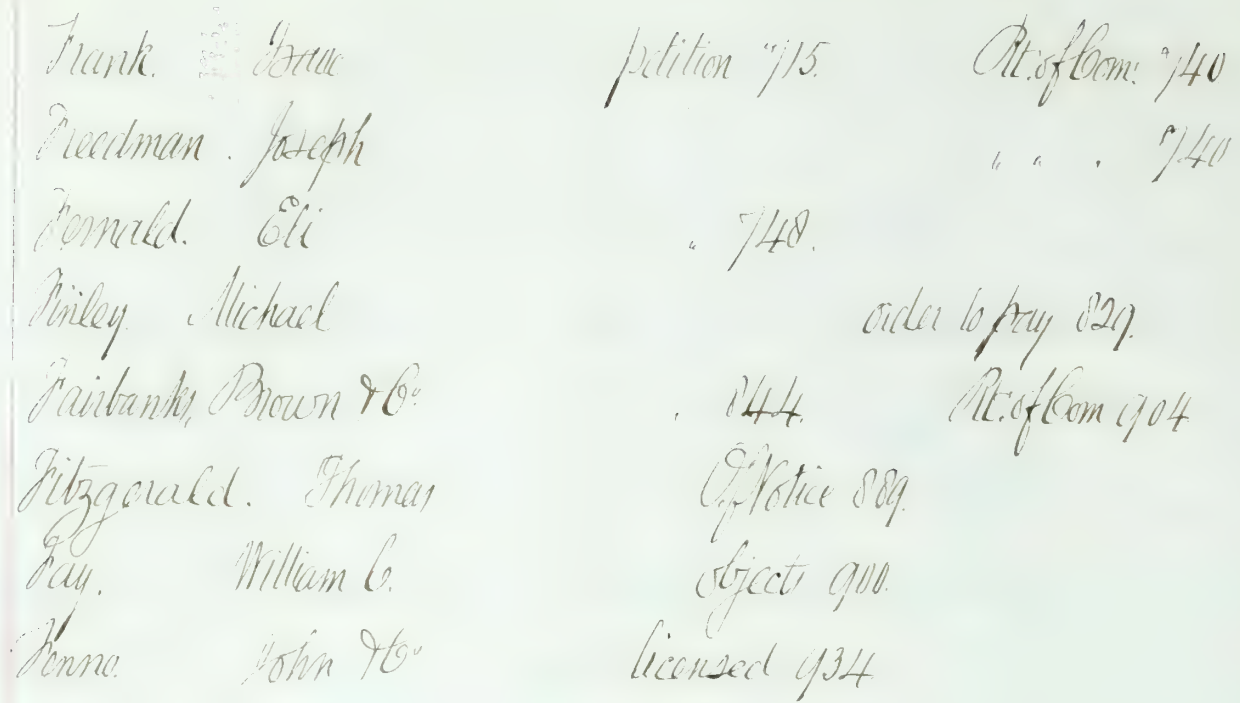 Frank. Isaac petition 715. Rt. of Com: 740
Freedman. Joseph " " . 740
Fernald. Eli " 748.
Finley Michael order to pay 829.
Fairbanks, Brown & Co. . 844. Rt. of Com 904
Fitzgerald. Thomas Of Notice 889.
Fay. William C. objects 900.
Fenno. John & Co licensed 934